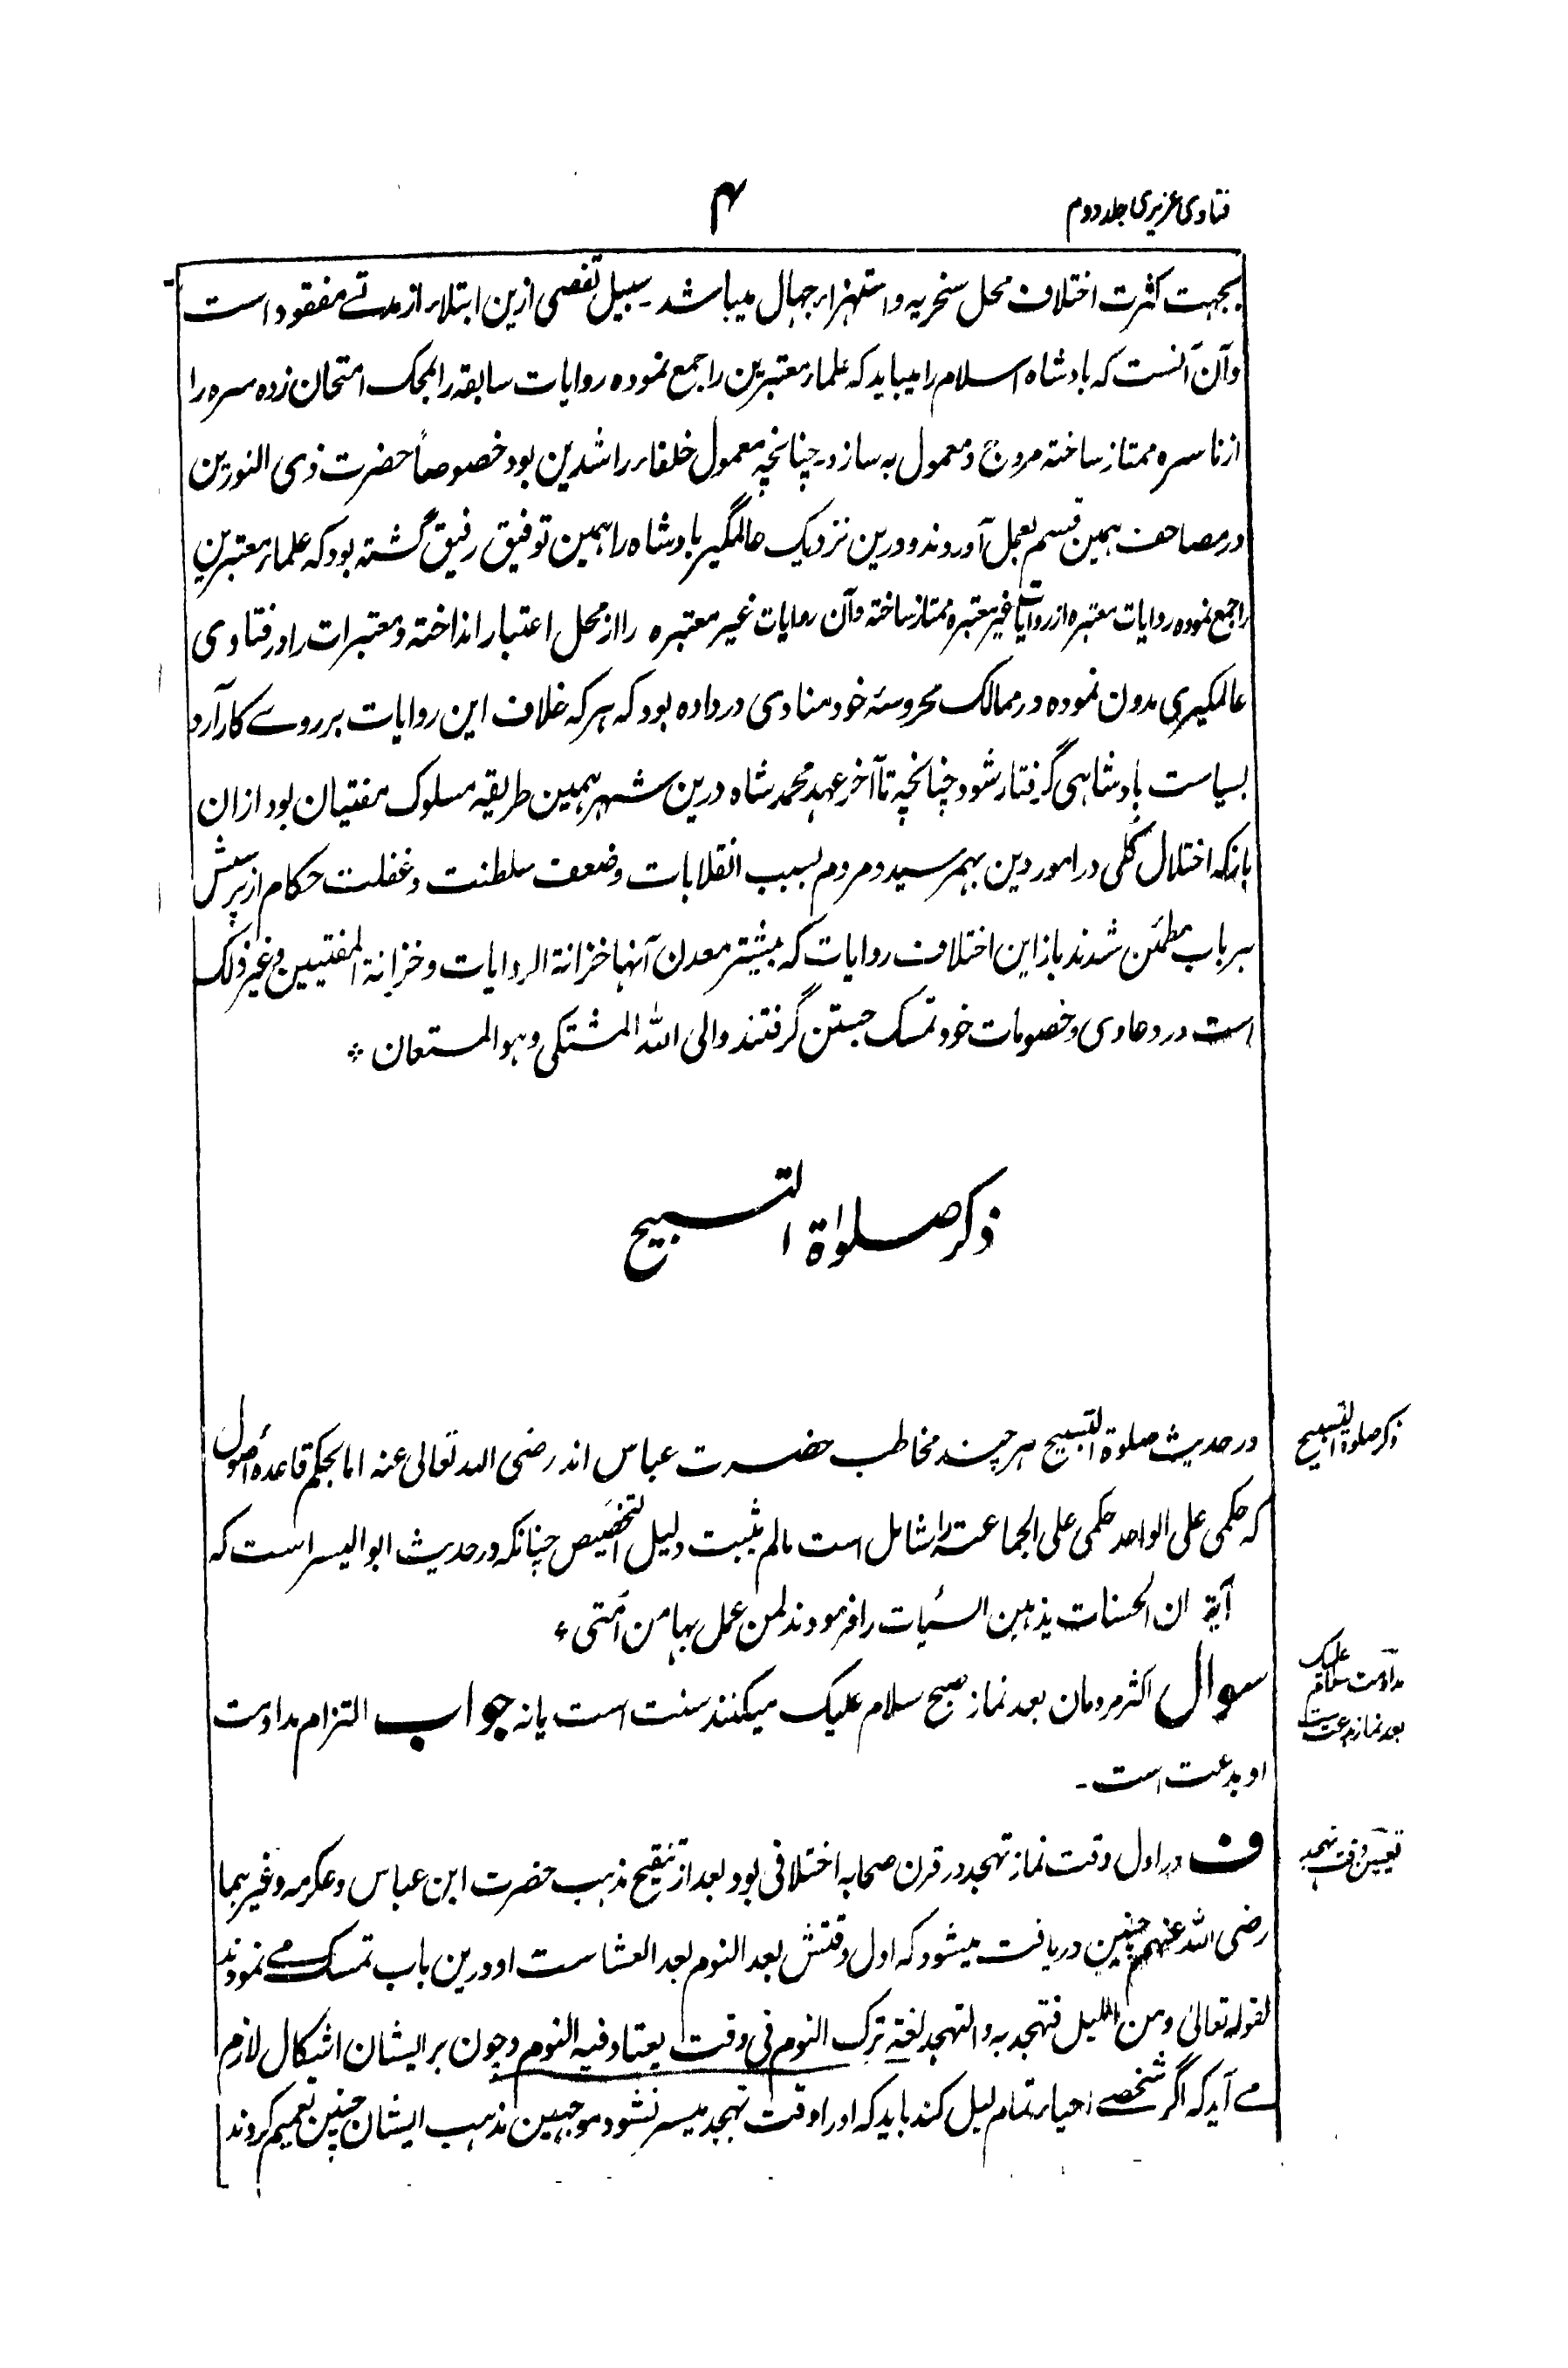 فتاوی عزیزی جلد دوم
۴
بجهت کثرت اختلاف محل سخریه و استهزاء جهال میباشد۔ سبیل تفصی ازین ابتلاء از مدتے مفقود است
و آن آنست که بادشاه اسلام را میباید که علماء معتبرین را جمع نموده روایات سابقه را بمحک امتحان زده سره را
از ناسره ممتاز ساخته مروج و معمول به سازد۔ چنانچه معمول خلفاء راشدین بود خصوصاً حضرت ذی النورین
در مصاحف همین قسم بعمل آوردند و درین نزدیک عالمگیر بادشاه را همین توفیق رفیق گشته بود که علماء معتبرین
را جمع نموده روایات معتبره از روایات غیر معتبره ممتاز ساخته و آن روایات غیر معتبره را از محل اعتبار انداخته و معتبرات را در فتاوی
عالمگیری مدون نموده در ممالک محروسهٔ خود منادی در داده بود که هر که خلاف این روایات بر روے کار آرد
بسیاست بادشاهی گرفتار شود چنانچه تا آخر عهد محمد شاه درین شهر همین طریقه مسلوک مفتیان بود ازان
بازکه اختلال کلی در امور دین بهم رسید و مردم بسبب انقلابات و ضعف سلطنت و غفلت حکام از پرسش
هر باب مطمئن شدند باز این اختلاف روایات که بیشتر معدن آنها خزانة الروایات و خزانة المفتیین و غیر ذلک
است در دعاوی و خصومات خود تمسک جستن گرفتند والی الله المشتکی و هو المستعان ٭
ذکر صلوٰة التسبیح
ذکر صلوة التسبیح
در حدیث صلوة التسبیح هر چند مخاطب حضرت عباس اند رضی الله تعالی عنه اما بحکم قاعدهٔ اصول
که حکمی علی الواحد حکمی علی الجماعة را شامل است مالم یثبت دلیل التخصیص چنانکه در حدیث ابو الیسر است که
آیة ان الحسنات یذهبن السیٔات را فرمودند لمن عمل بها من اُمتی ٭
مداومت سلام علیک
بعد نماز بدعت است
سوال اکثر مردمان بعد نماز صبح سلام علیک میکنند سنت است یا نه جواب التزام مداومت
او بدعت است۔
تعیین وقت تهجد
ف در اول وقت نماز تهجد در قرن صحابه اختلافی بود بعد از تنقیح مذهب حضرت ابن عباس و عکرمه و غیرهما
رضی الله عنهم چنین دریافت میشود که اول وقتش بعد النوم بعد العشاست او درین باب تمسک مے نمودند
لقوله تعالیٰ ومن اللیل فتهجد به والتهجد لغة ترک النوم فی وقت یعتاد فیه النوم و چون بر ایشان اشکال لازم
مے آید که اگر شخصے احیاء تمام لیل کند باید که او را وقت تهجد میسر نشود موجهین مذهب ایشان چنین تعمیم کردند